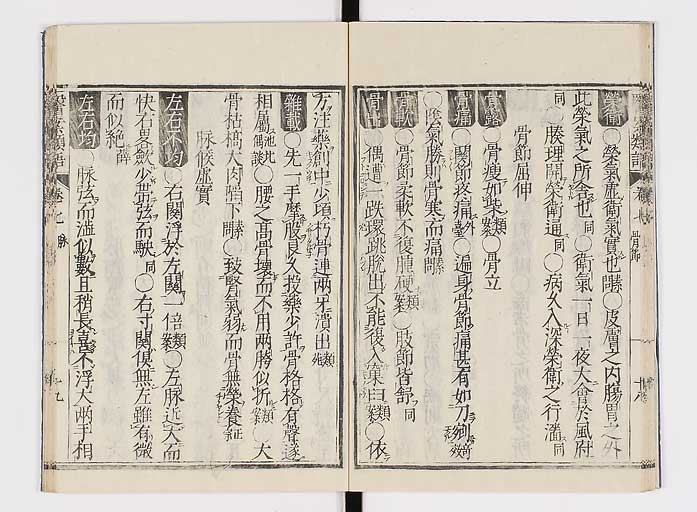 榮衛 ○榮氣虛衛氣實也○皮膚之内腸胃之外
此榮氣之所舍也同○衛氣一日一夜大會於風府
同○腠理開榮衛通同○病久入深榮衛之行濇同
骨節屈伸
骨露 ○骨瘦如柴類案○骨立
骨痛 ○關節疼痛外臺○遍身骨節痛甚有如刀
○陰氣勝則骨寒而痛
骨軟 ○骨節柔軟不復腫硬類案○肢節皆舒同
偶遭一跌環跳脫出不能復入窠臼類案○依
方注藥創中少頃朽骨連兩牙潰出類案
雜載 ○先一手摩股良久投藥少許骨格格有聲遂
相屬池北偶談○腰之髙骨壞而不用兩胯似折類案○大
骨枯槁大肉陷下○致腎氣弱而骨無榮養
脉候虛實
左右不均 ○右關浮於左關一倍類案○左脉近大而
快右畧歛少帶弦而駛同○右寸關俱無左雖有微
而似絶
左右均 ○脉弦而濇似數且稍長喜不浮大兩手相
骨節
脉